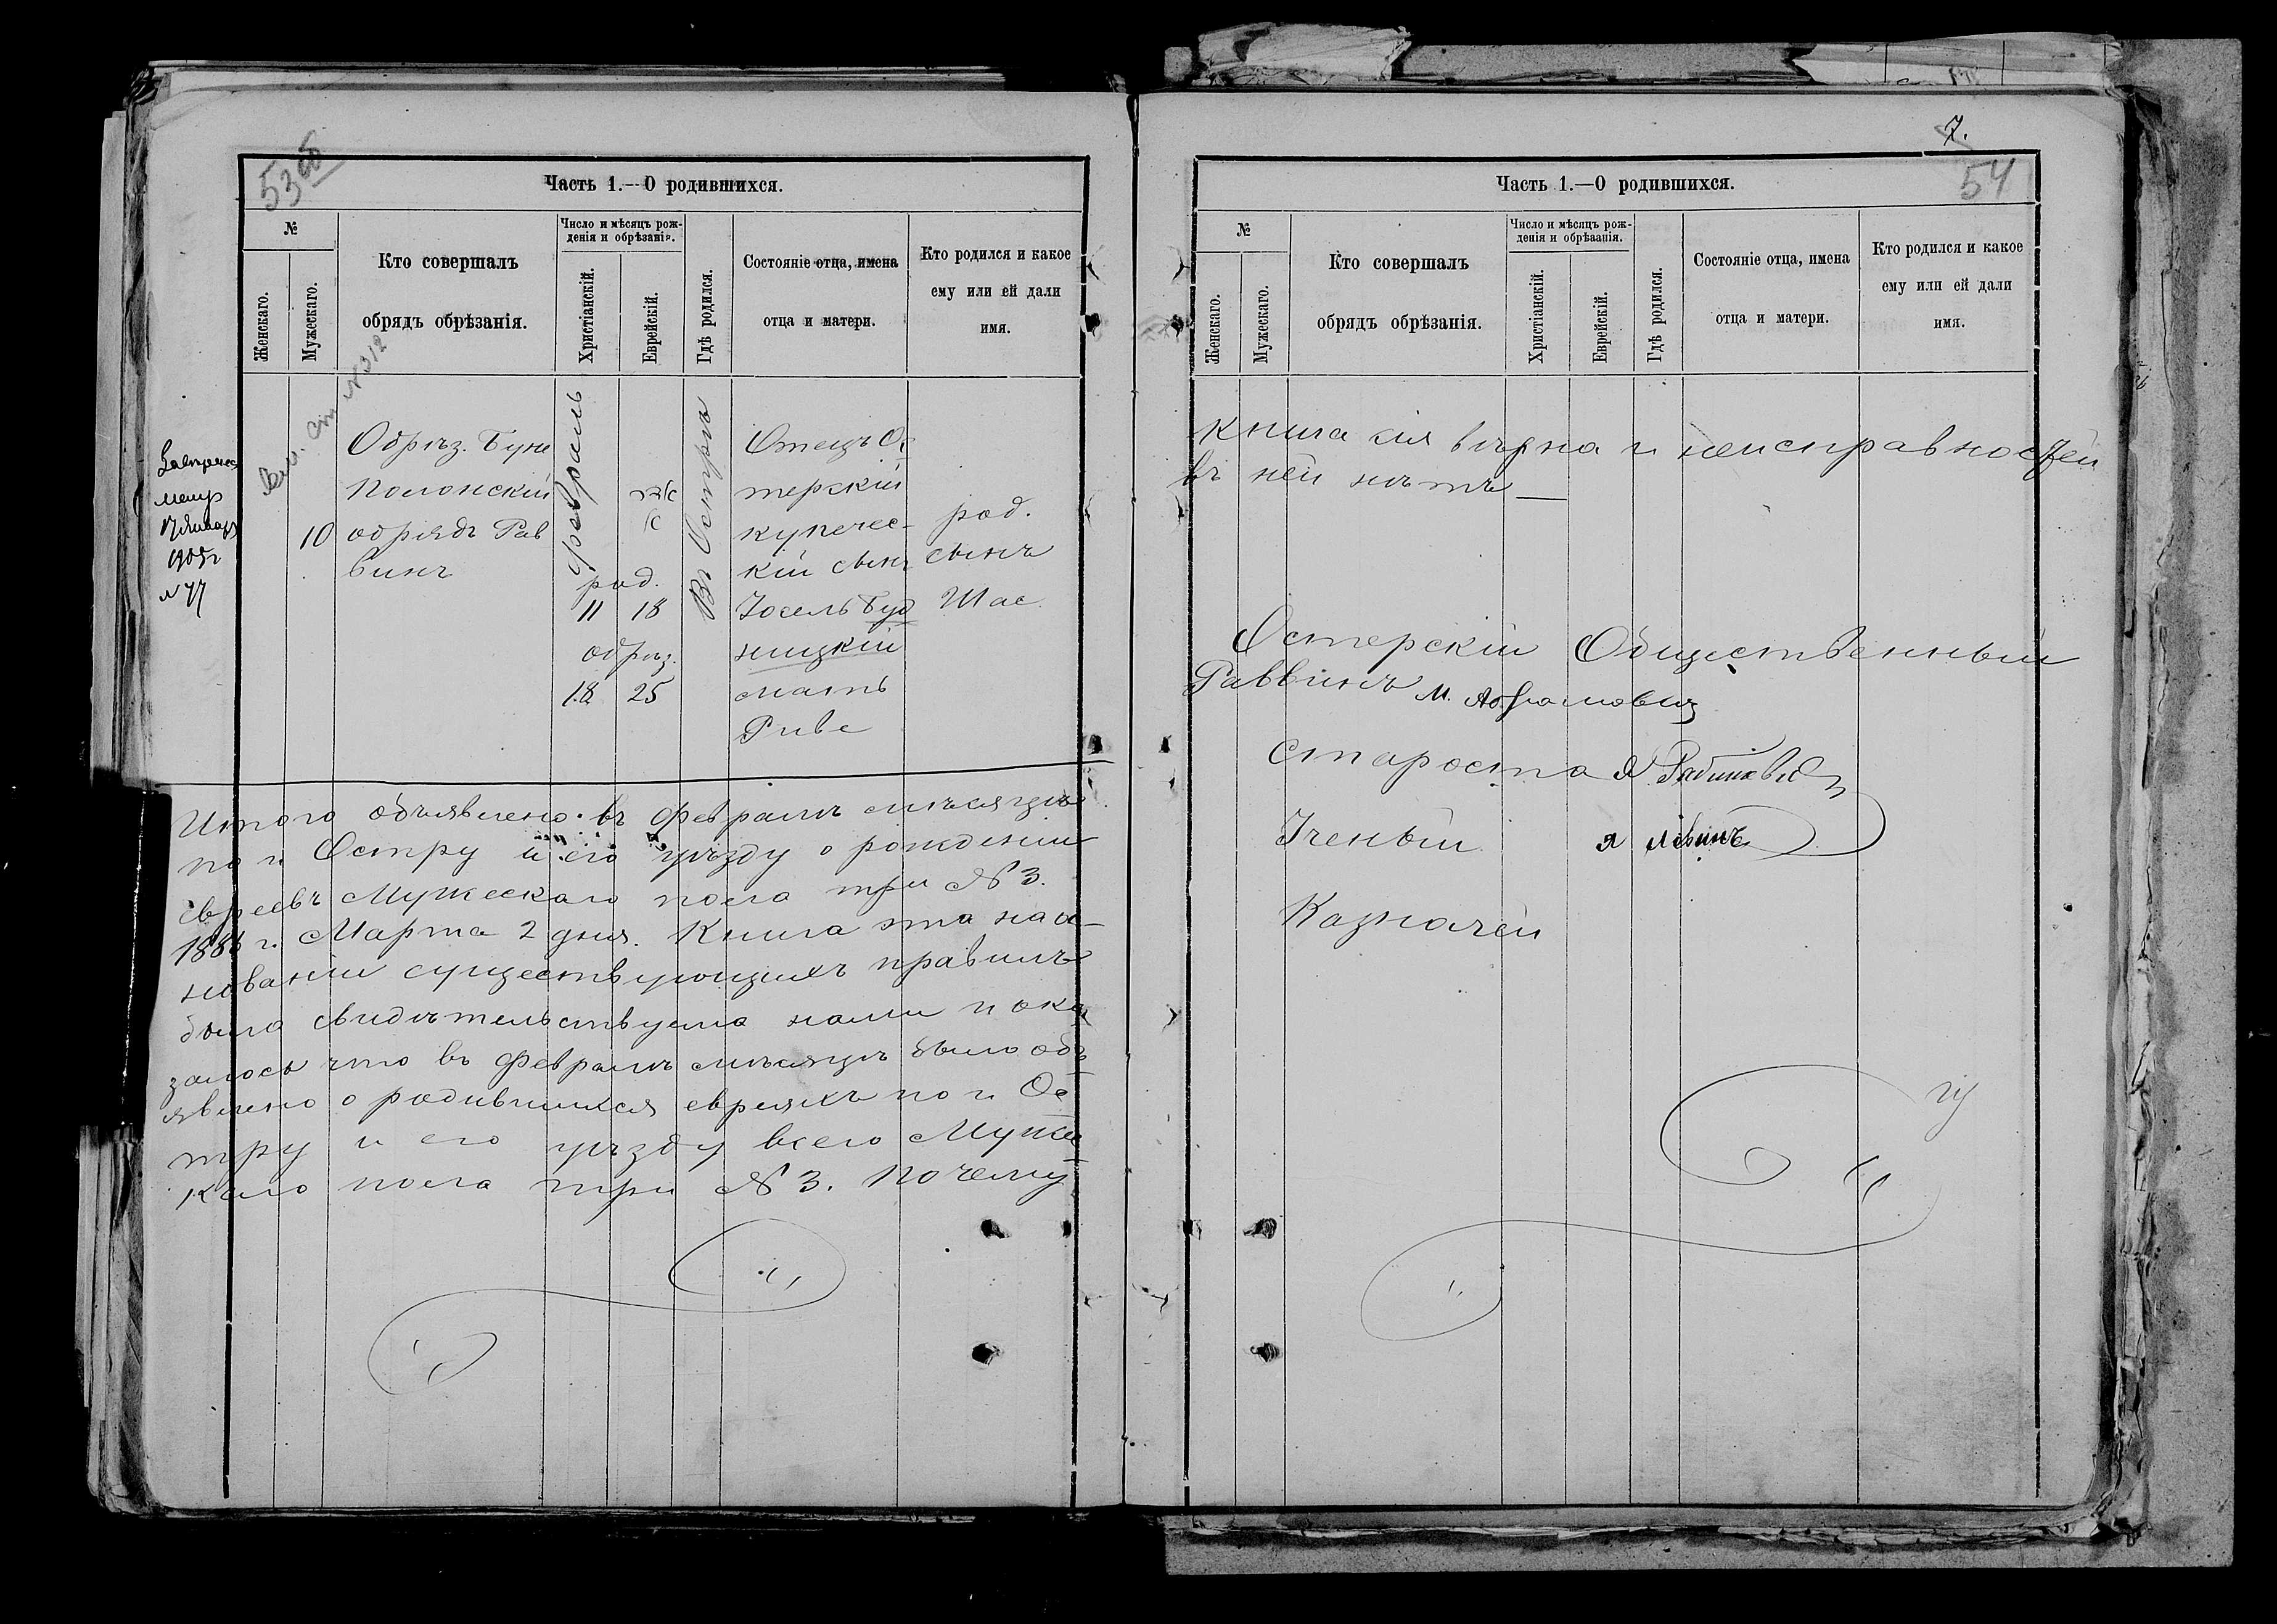 53 об
Часть 1.—О родившихся.
№
Женскаго.
Мужескаго.
Кто совершалъ
обрядъ обрѣзанія.
Число и мѣсяцъ рож-
денія и обрѣзанія.
Христіанскій.
Еврейскій.
Гдѣ родился.
Состояніе отца, имена
отца и матери.
Кто родился и какое
ему или ей дали
имя.
№ 312
1905 г
№ 77
10
Обрѣз. Буне
Полонскій
обрядъ Рав
винъ
февраль
род.
11 18
обрѣз.
18 25
Въ Острѣ
Отецъ Ос
терскій
купечес-
кій сынъ
Іосель Буд
ницкій
мать
Риве
род.
сынъ
Шае
Итого объявлено въ февралѣ мѣсяцѣ
по г. Остру и его уѣзду о рожденіи
евреевъ Мужескаго пола три № 3.
1886 г. Марта 2 дня. Книга эта на ос-
нованіи существующихъ правилъ
была свидѣтельствуема нами и ока
залось что въ февралѣ мѣсяцѣ было объ
явлено о родившихся евреяхъ по г. Ос
тру и его уѣзду всего Мужес
каго пола три № 3. Почему
7.
54
Часть 1.—О родившихся.
№
Женскаго.
Мужескаго.
Кто совершалъ
обрядъ обрѣзанія.
Число и мѣсяцъ рож-
денія и обрѣзанія.
Христіанскій.
Еврейскій.
Гдѣ родился.
Состояніе отца, имена
отца и матери.
Кто родился и какое
ему или ей дали
имя.
книга сія вѣрна и неисправностей
въ ней нѣтъ—
Остерскій Общественный
Раввинъ М. Абрамовичъ
Староста
Ученый Я Левинъ
Казначей